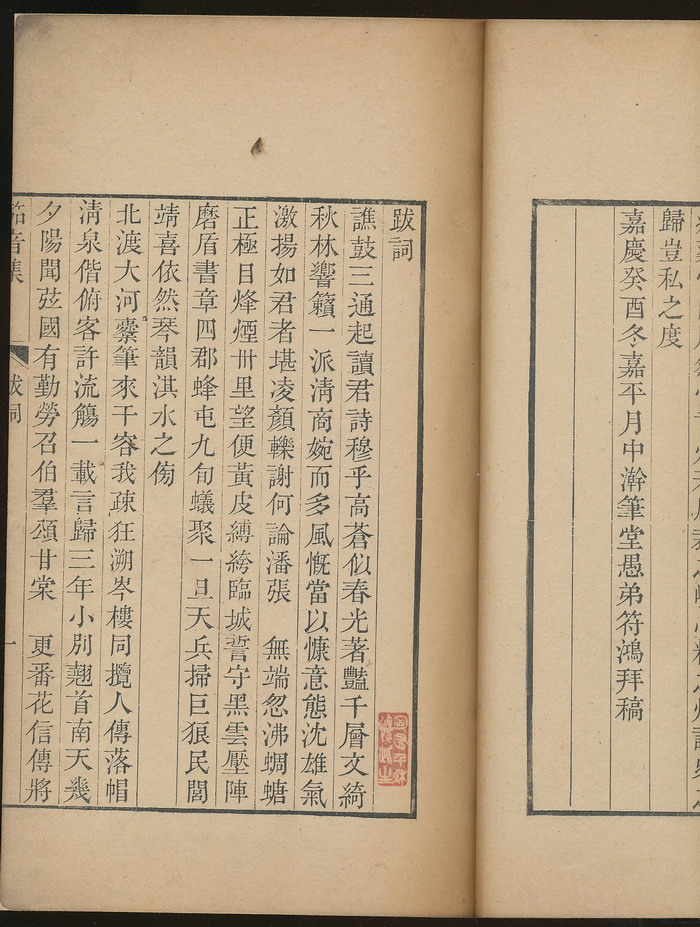 歸豈私之度
嘉慶癸酉冬嘉平月中澣筆堂愚弟符鴻拜稿
跋詞
譙鼓三通起讀君詩穆乎高蒼似春光著豔千層文綺
秋林響籟一派清商婉而多風慨當以慷意態沈雄氣
激揚如君者堪凌顏轢謝何論潘張　無端忽沸蜩螗
正極目烽煙卅里望便黃皮縛絝臨城誓守黑雲壓陣
磨盾書章四郡蜂屯九旬蟻聚一旦天兵掃巨狼民閭
靖喜依然琴韻淇水之傍
北渡大河橐筆來干容我疎狂溯岑樓同攬人傳落帽
清泉偕俯客許流觴一載言歸三年小別翹首南天幾
夕陽聞弦國有勤勞召伯羣頌甘棠　更番花信傳將
笳音集
跋詞
一